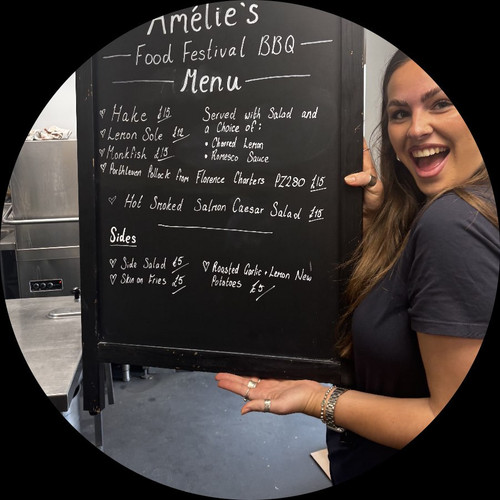 Amélie's
Food Festival BBQ
Menu
Hake £15
Lemon Sole
Monkfish £15
Served with Salad and
a Choice of:
• Charred Lemon
• Romesco Sauce
Porthleven Pollock from Florence Charters PZ280 £15
Hot Smoked Salmon Caesar Salad £15
Sides
Side Salad £5
Skin on Fries £5
Roasted Garlic + Lemon New
Potatoes £5